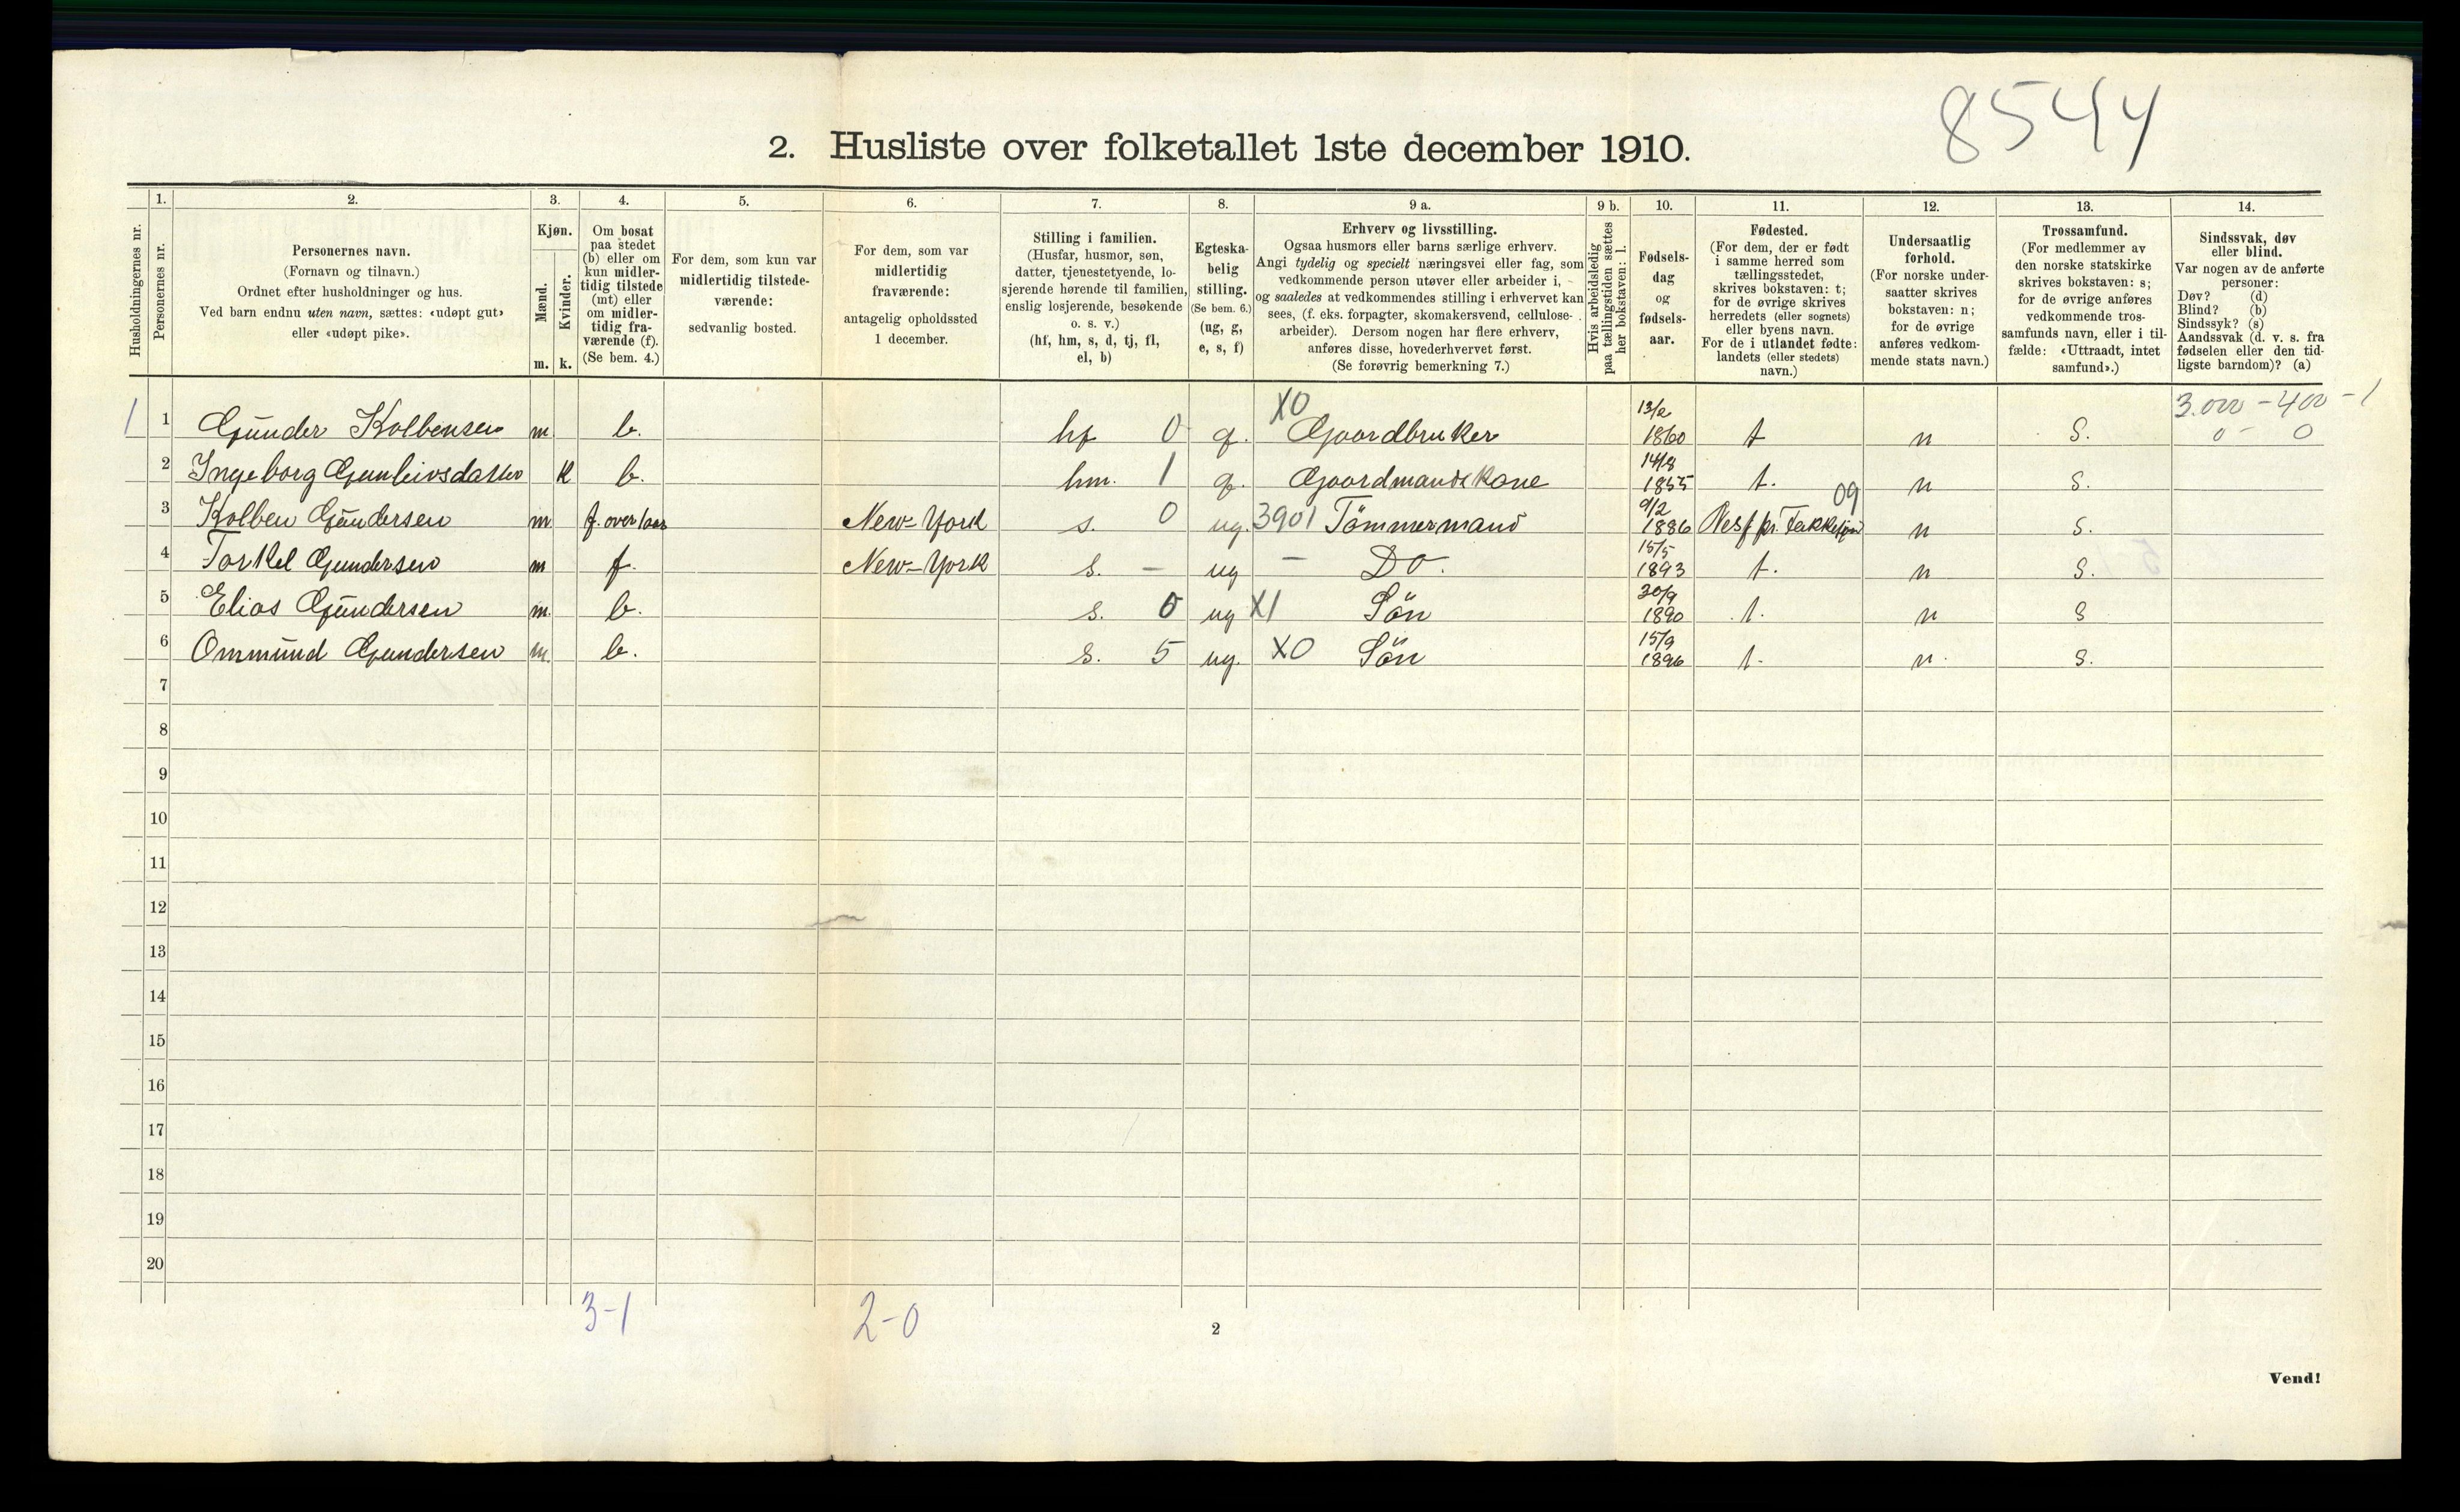 8544
2. Husliste over folketallet 1ste december 1910.
Husholdningernes nr.
1. Personernes nr.
2. Personernes navn. (Fornavn og tilnavn.) Ordnet efter husholdninger og hus. Ved barn endnu uten navn, sættes: «udøpt gut» eller «udøpt pike».
3. Kjøn. Mænd. m. Kvinder. k.
4. Om bosat paa stedet (b) eller om kun midlertidig tilstede (mt) eller om midlertidig fraværende (f). (Se bem. 4.)
5. For dem, som kun var midlertidig tilstedeværende: sedvanlig bosted.
6. For dem, som var midlertidig fraværende: antagelig opholdssted 1 december.
7. Stilling i familien. (Husfar, husmor, søn, datter, tjenestetyende, losjerende hørende til familien, enslig losjerende, besøkende o. s. v.) (hf, hm, s, d, tj, fl, el, b)
8. Egteskabelig stilling. (Se bem. 6.) (ug, g, e, s, f)
9 a. Erhverv og livsstilling. Ogsaa husmors eller barns særlige erhverv. Angi tydelig og specielt næringsvei eller fag, som vedkommende person utøver eller arbeider i, og saaledes at vedkommendes stilling i erhvervet kan sees, (f. eks. forpagter, skomakersvend, cellulosearbeider). Dersom nogen har flere erhverv, anføres disse, hovederhvervet først. (Se forøvrig bemerkning 7.)
9 b. Hvis arbeidsledig paa tællingstiden sættes her bokstaven: l.
10. Fødselsdag og fødselsaar.
11. Fødested. (For dem, der er født i samme herred som tællingsstedet, skrives bokstaven: t; for de øvrige skrives herredets (eller sognets) eller byens navn. For de i utlandet fødte: landets (eller stedets) navn.)
12. Undersaatlig forhold. (For norske undersaatter skrives bokstaven: n; for de øvrige anføres vedkommende stats navn.)
13. Trossamfund. (For medlemmer av den norske statskirke skrives bokstaven: s; for de øvrige anføres vedkommende trossamfunds navn, eller i tilfælde: «Uttraadt, intet samfund».)
14. Sindssvak, døv eller blind. Var nogen av de anførte personer: Døv? (d) Blind? (b) Sindssyk? (s) Aandssvak (d. v. s. fra fødselen eller den tidligste barndom)? (a)
3.000 - 400 - 1
0 - 0
1 1 Gunder Kolbensen m. b. hf 0 g. X0 Gaardbruker 13/2 1860 t n S.
2 Ingeborg Gunleivsdatter k b. hm. 1 g. Gaardmandskone 14/8 1855 t. n S.
3 Kolben Gundersen m. f. over 1 aar New-York s. 0 ug. 3901 Tömmermand 9/2 1886 09 n S.
4 Torkel Gundersen m f. New-York s. - ug - Do. 15/5 1893 t. n S.
5 Elias Gundersen m. b. s. 0 ug X1 Sön 30/9 1890 t. n S
6 Ommund Gundersen m. b. s. 5 ug. X0 Sön 15/9 1896 t. n. S.
7
8
9
10
11
12
13
14
15
16
17
18
19
20
3-1 2-0
2
Vend!